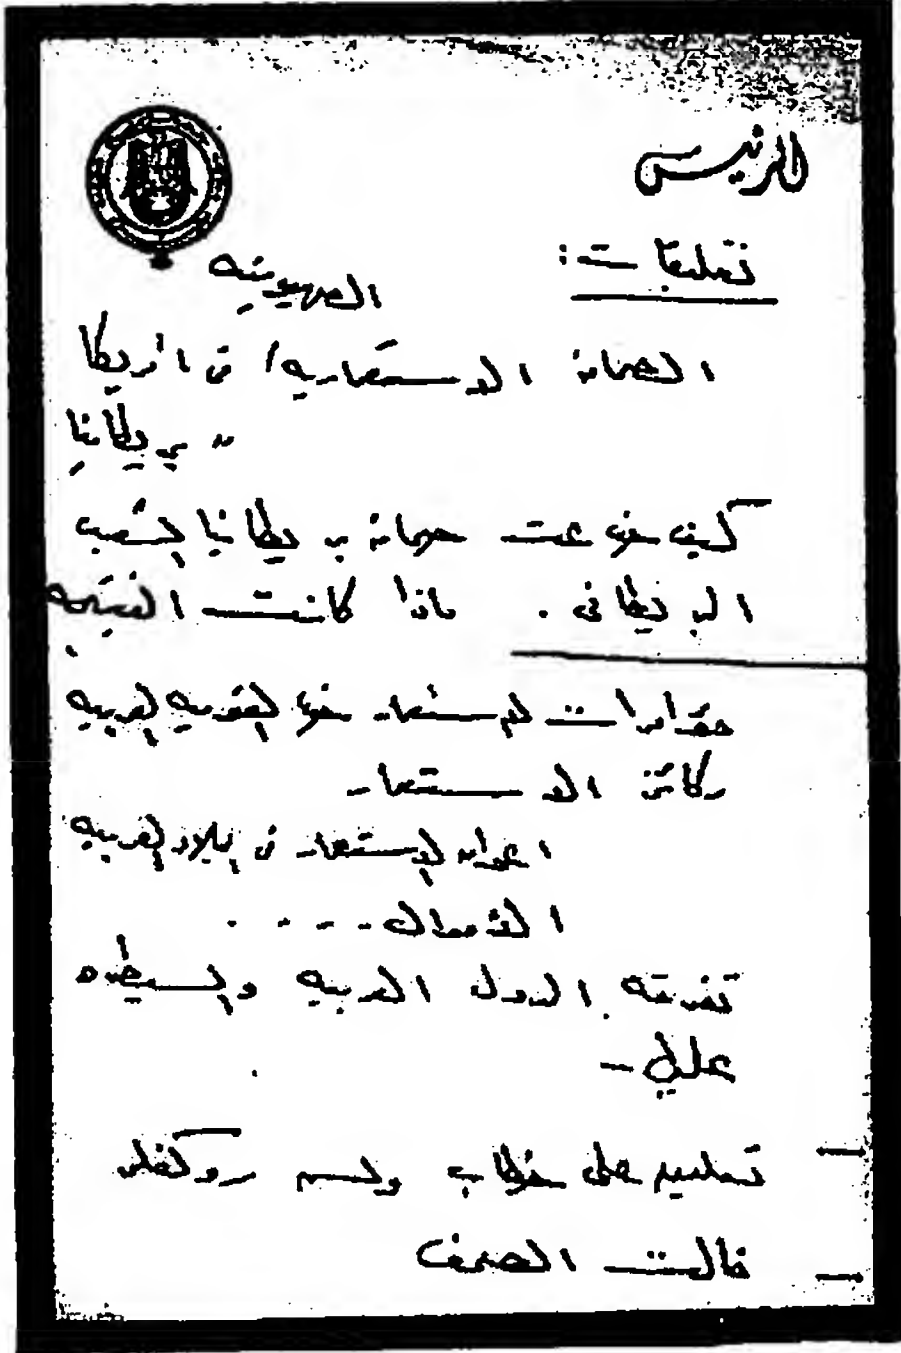 الرئيس
تعليقات :
الصهيونيه
الصحافة الاستعماريه / فى امريكا
" بريطانيا
كيف خدعت صحافة بريطانيا الشعب
البريطانى . ماذا كانت النتيجه
مؤامرات الاستعمار ضد القوميه العربيه
ركائز الاستعمار
اعوان الاستعمار فى البلاد العربيه
الاموال - - - -
تفرقة الدول العربيه والسيطره
عليها -
تعليق على خطاب وليم روكفلر
قالت الصحف